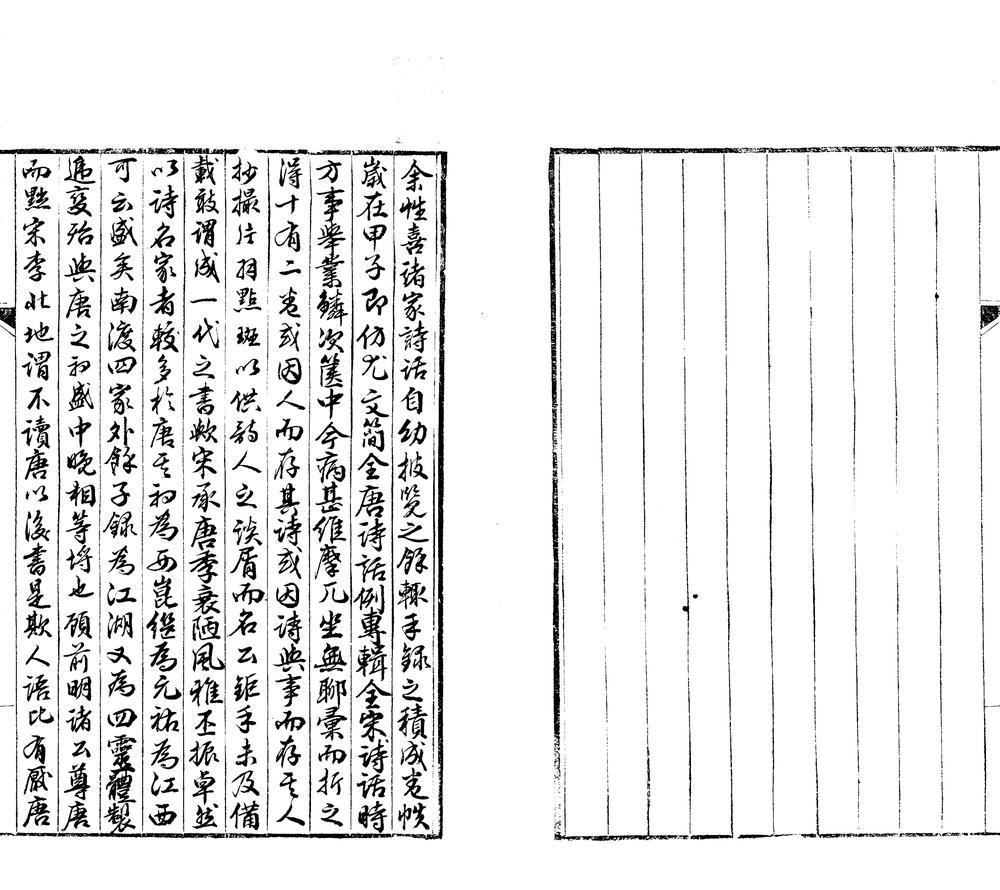 余性喜諸家詩話自幼披覽之餘輒手錄之積成卷帙
歲在甲子即仿尤文簡全唐詩話例專輯全宋詩話時
方事舉業鱗次篋中今病甚維摩兀坐無聊彙而折之
得十有二卷或因人而存其詩或因詩與事而存其人
抄撮片羽點斑以供詩人之談屑而名公鉅手未及備
載敢謂成一代之書歟宋承唐季衰陋風雅丕振卓然
以詩名家者較多於唐其初為西崑繼為元祐為江西
可云盛矣南渡四家外餘子錄為江湖又為四靈體製
遞變殆與唐之初盛中晚相等埒也顧前明諸公尊唐
而黜宋李北地謂不讀唐以後書是欺人語比有厭唐